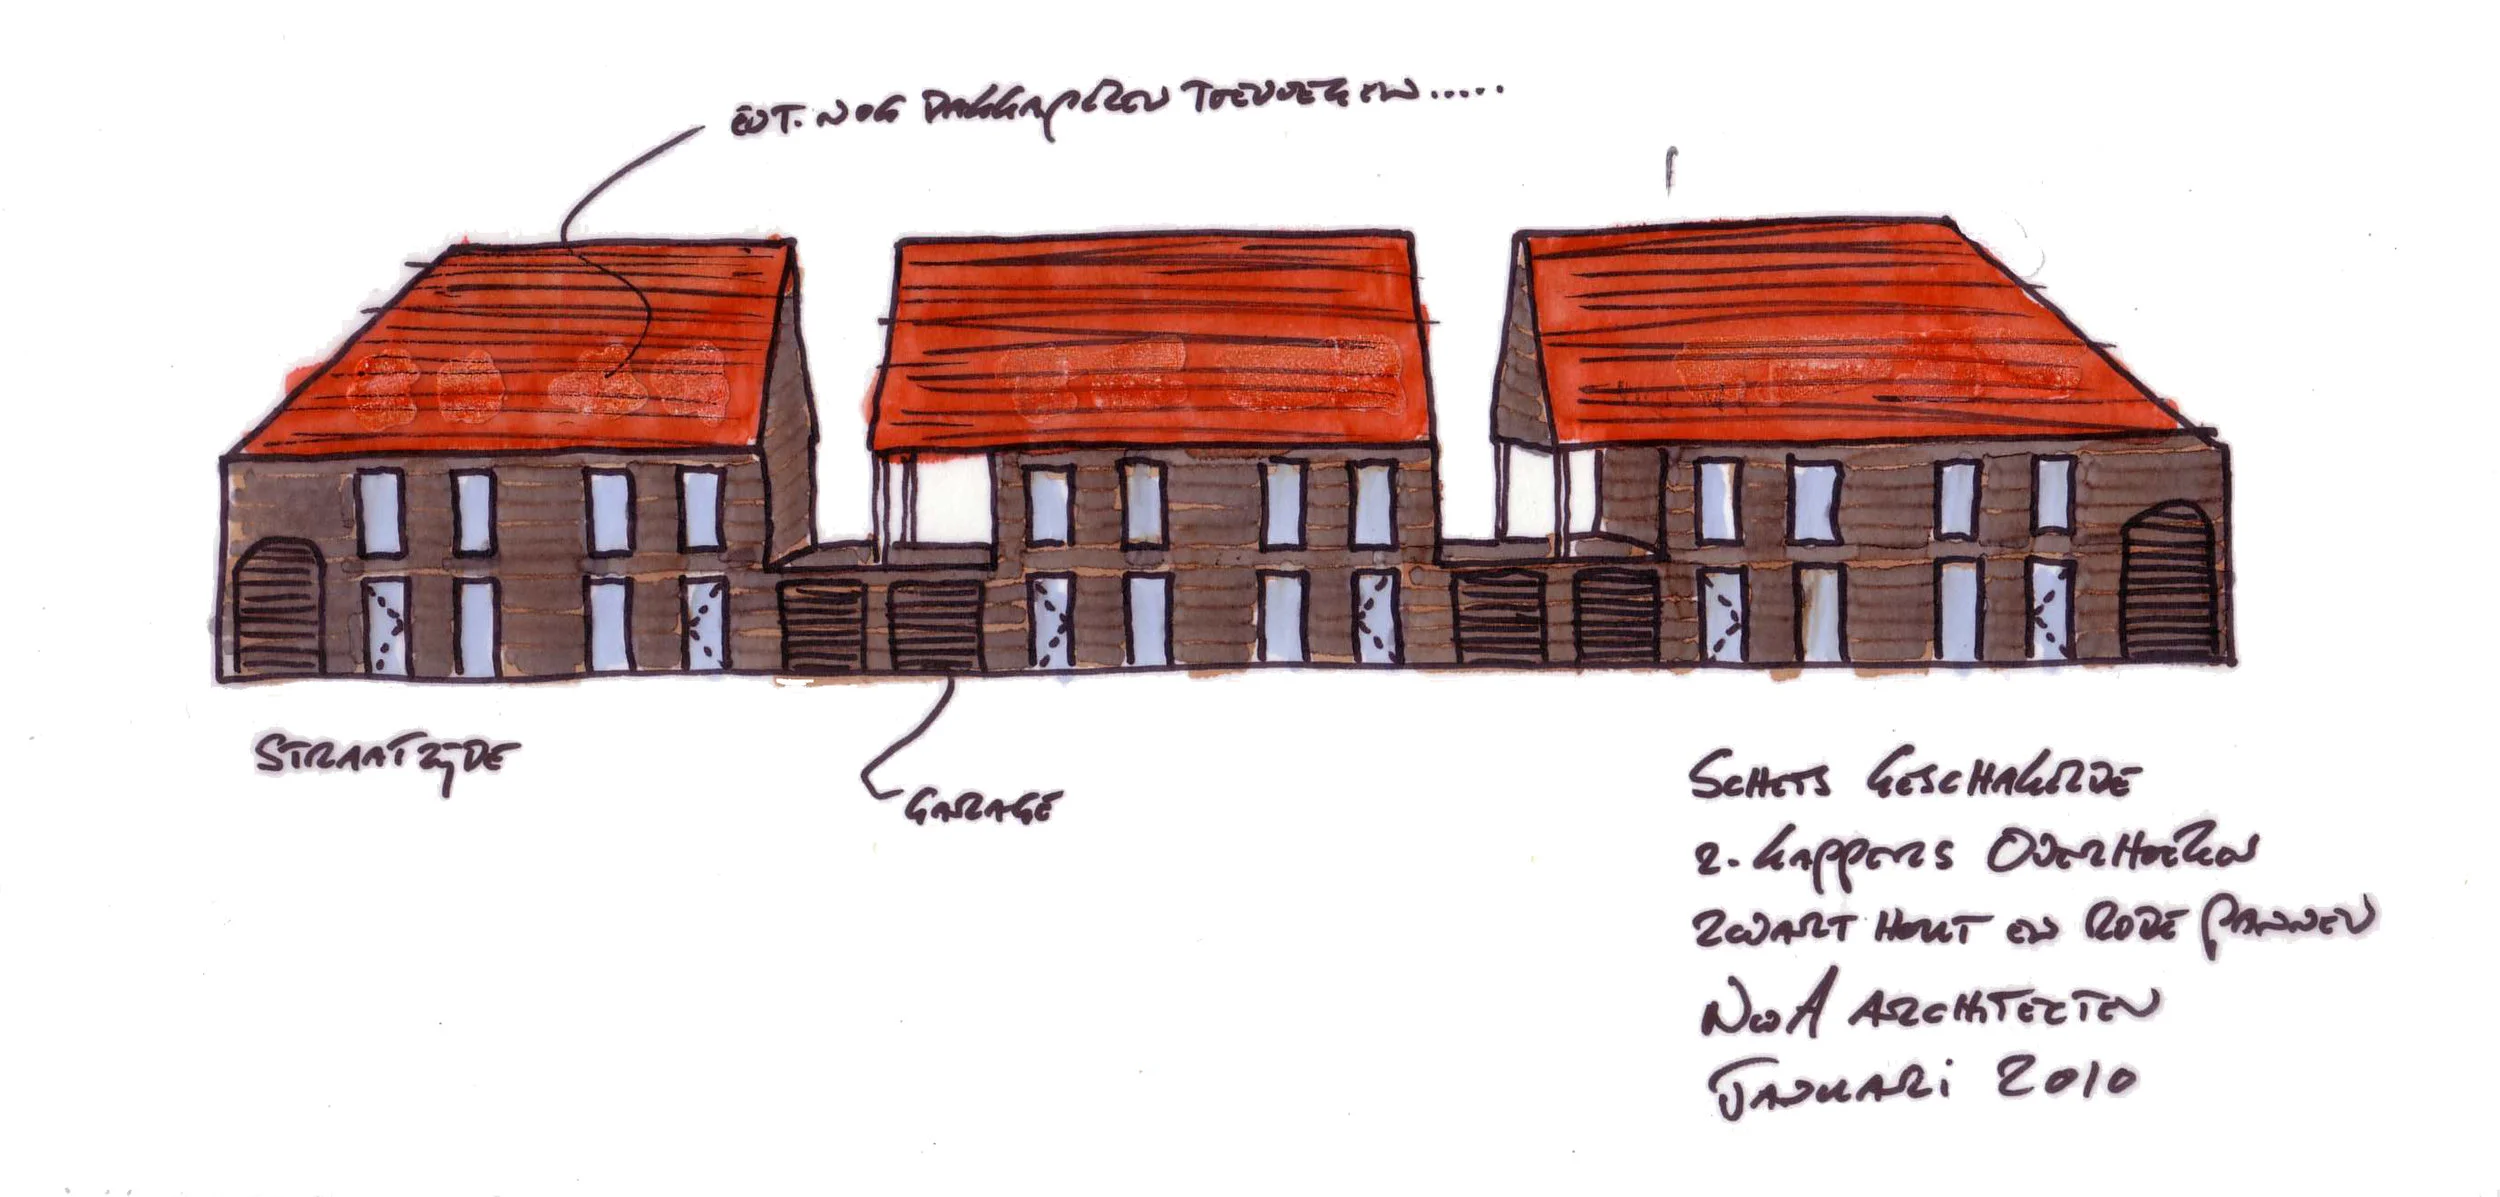 EVT. NOG DAKKAPELLEN TOEVOEGEN.....
STRAATZIJDE
GARAGE
SCHETS GESCHAKELDE
2-KAPPERS OVERHOEKEN
ZWART HOUT EN RODE PANNEN
NWA ARCHITECTEN
JANUARI 2010